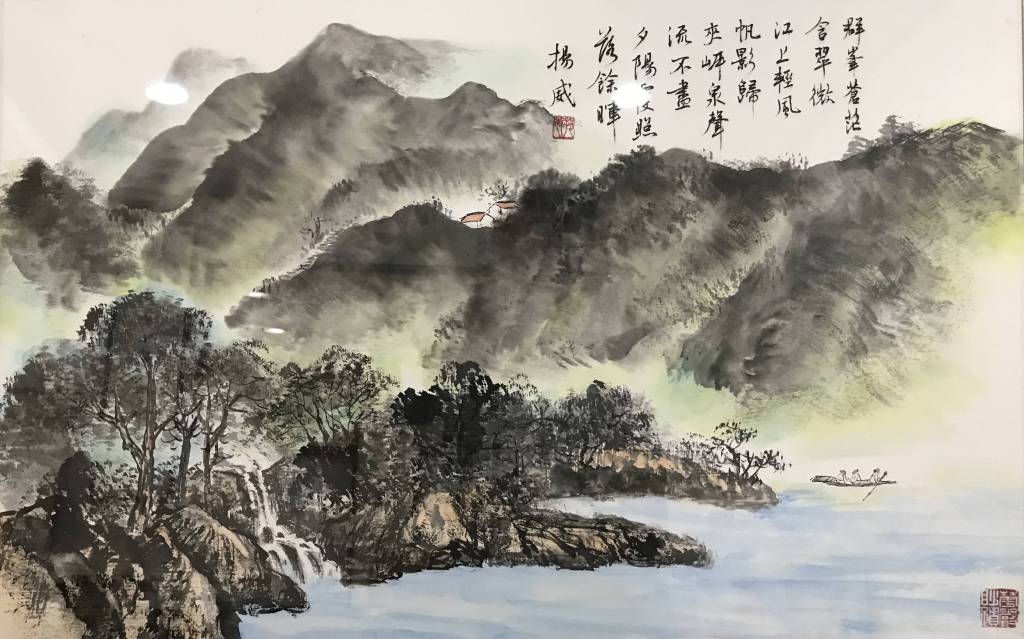 群峯蒼茫
含翠微
江上輕風
帆影歸
夾岸泉聲
流不盡
夕陽返照
落餘暉
揚威